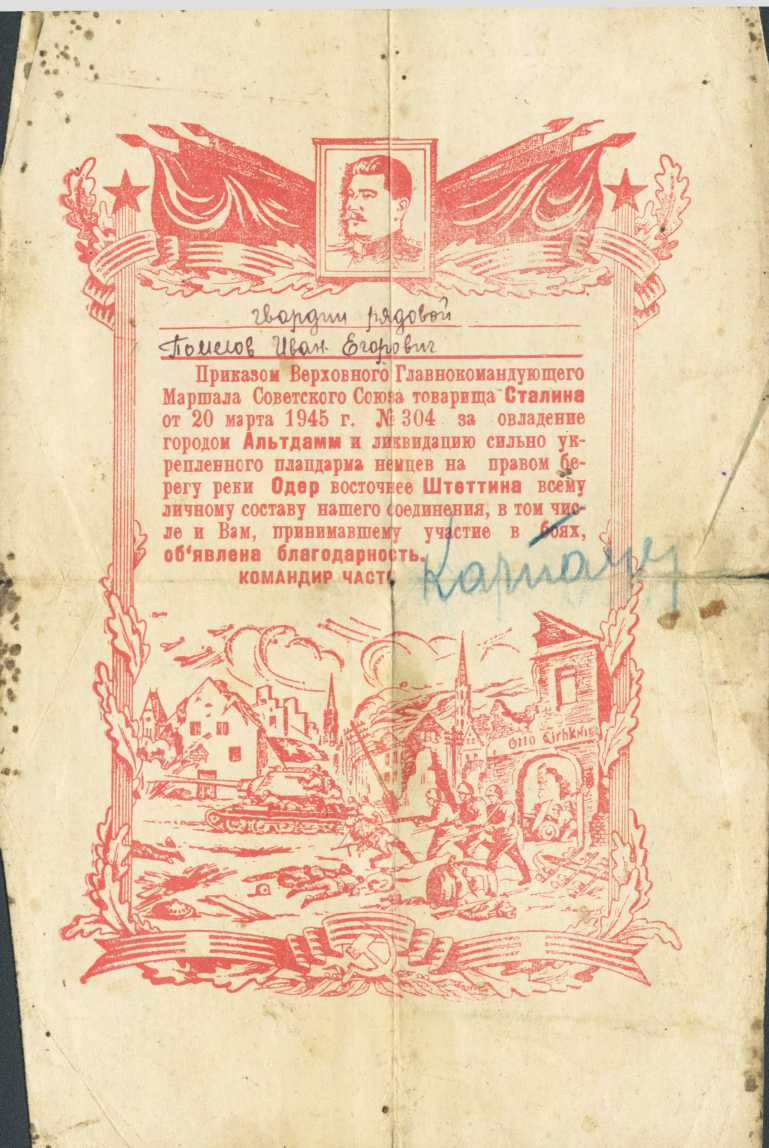 гвардии рядовой
Помелов Иван Егорович
Приказом Верховного Главнокомандующего
Маршала Советского Союза товарища Сталина
от 20 марта 1945 г. № 304 за овладение
городом Альтдамм и ликвидацию сильно ук-
репленного плацдарма немцев на правом бе-
регу реки Одер восточнее Штеттина всему
личному составу нашего соединения, в том чис-
ле и Вам, принимавшему участие в боях,
об'явлена благодарность.
КОМАНДИР ЧАСТИ
OTTO KIRHKNIE